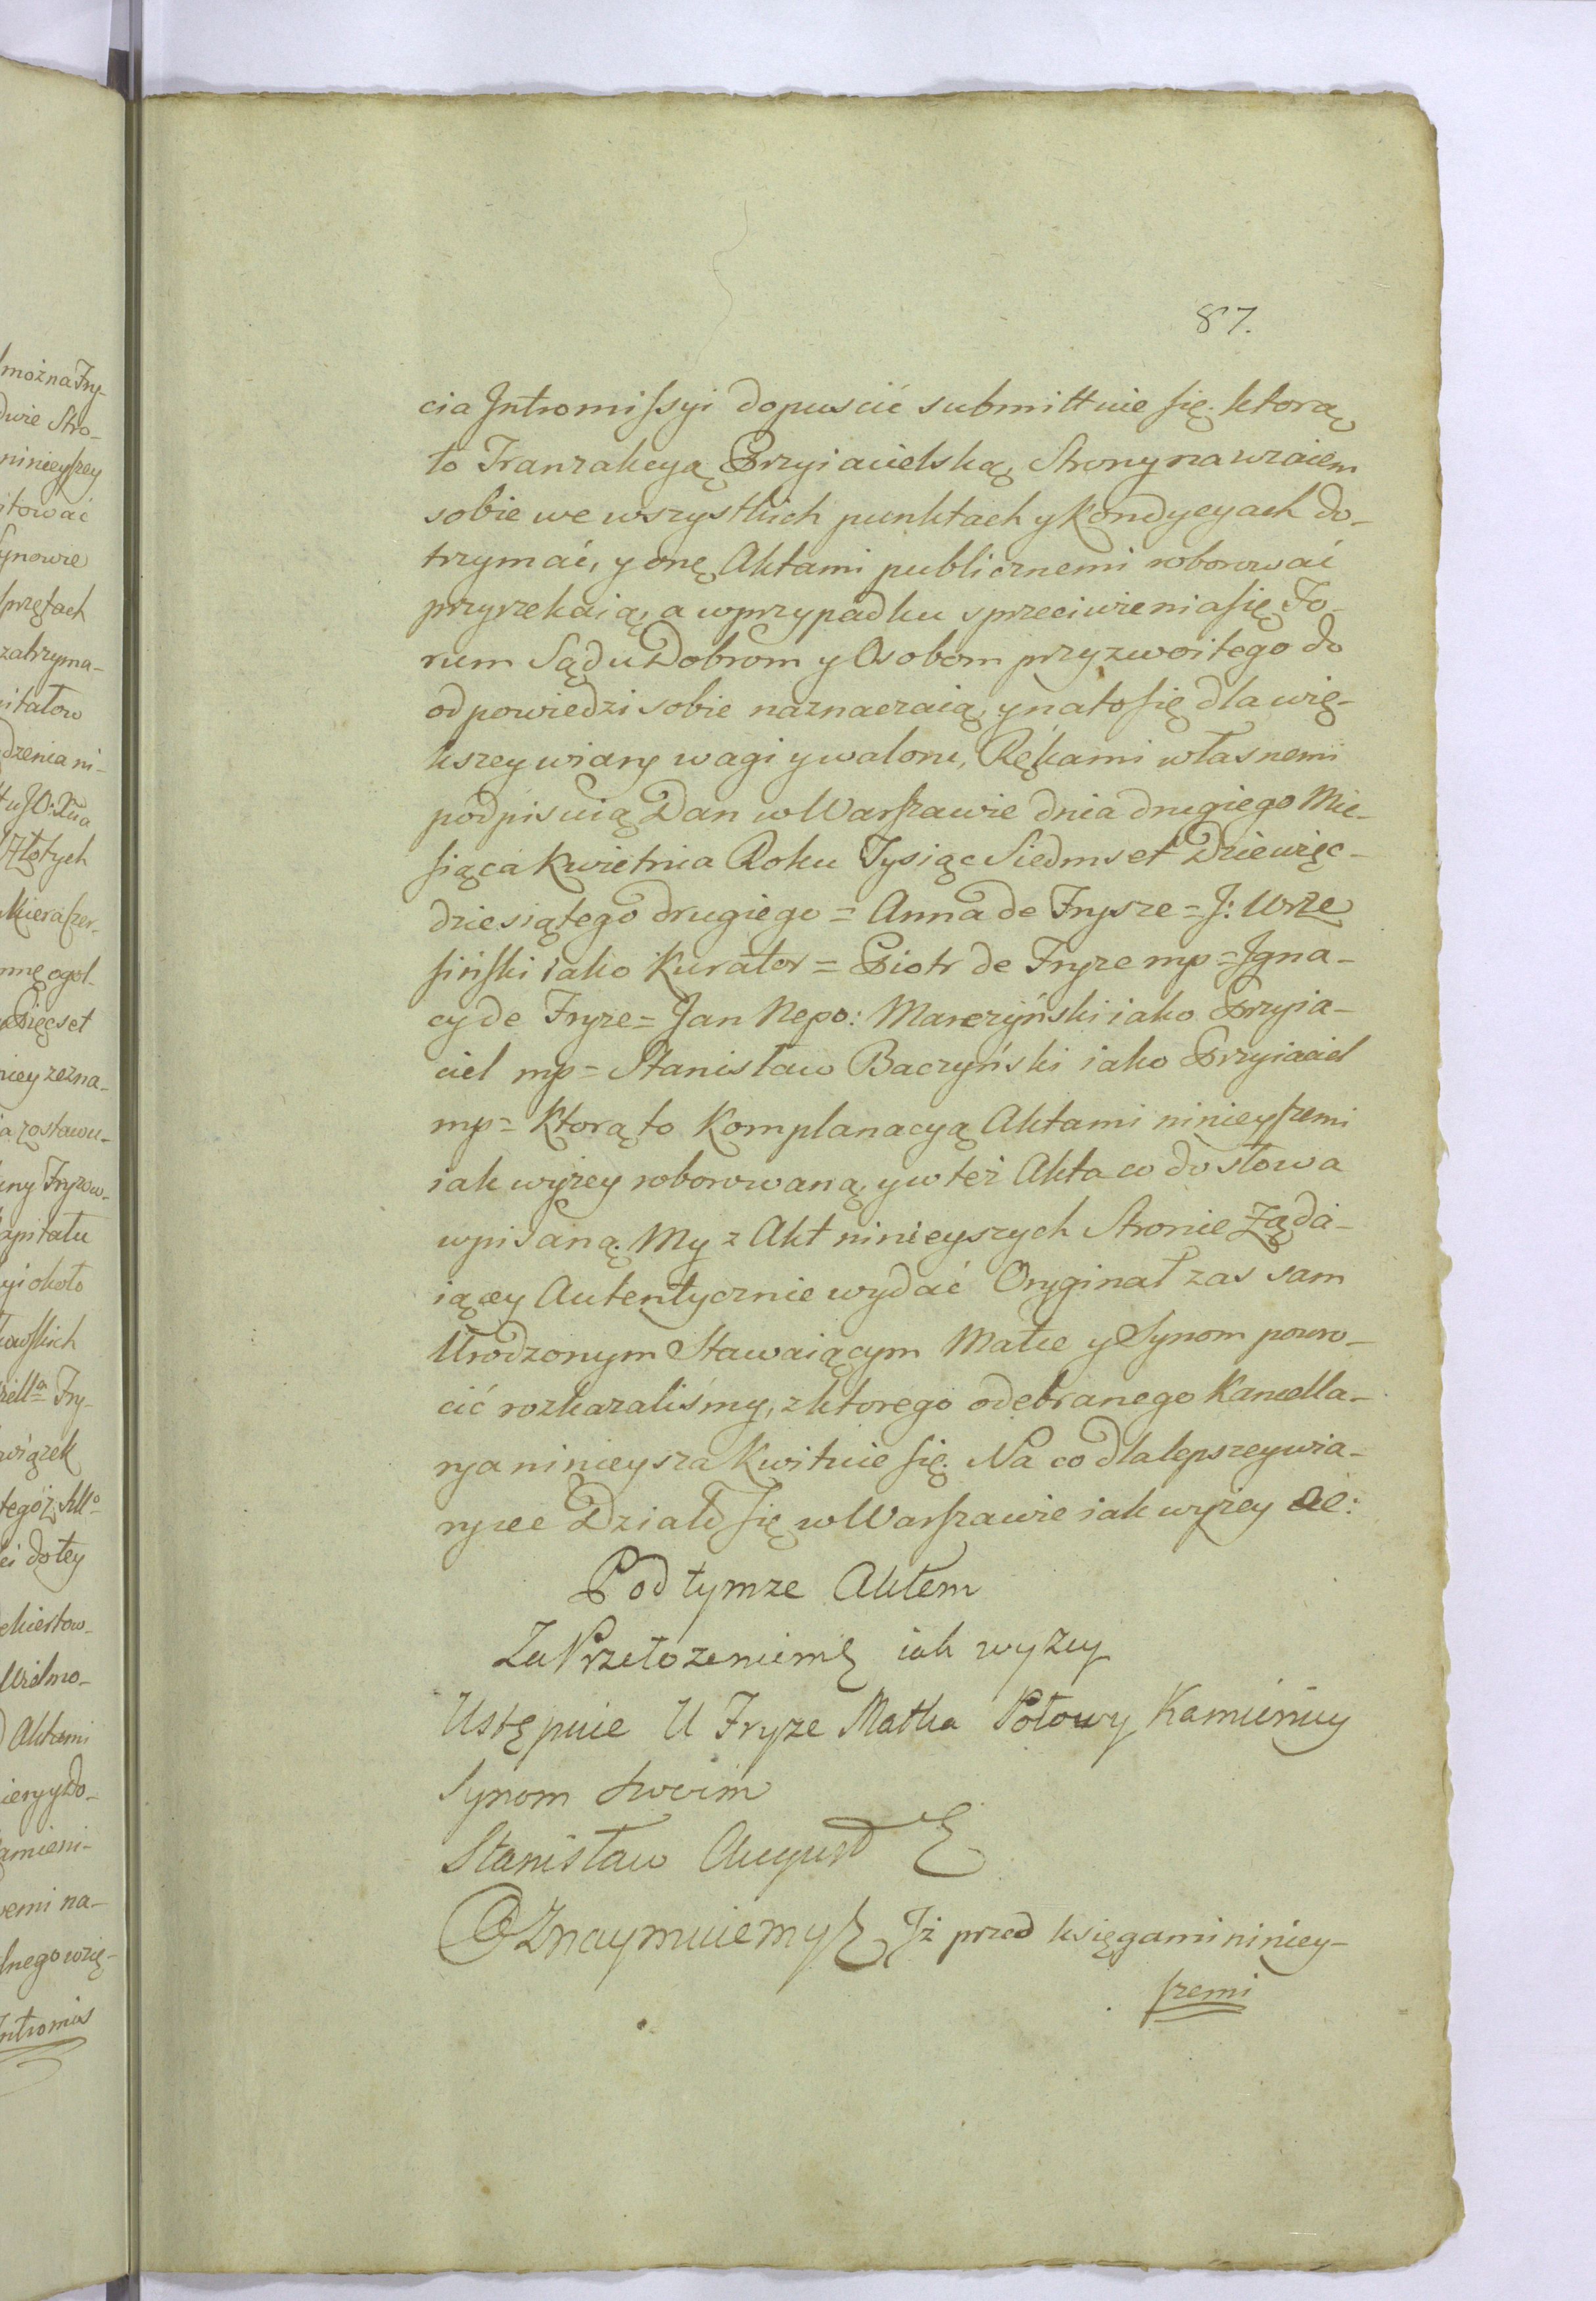 można Fry-
dwie Stro-
ninieyszey
itować
Synowie
sprzętach
zatrzyma-
pitałow
dzenia ni-
Złotych
ogol-
Pięcset
niey zezna-
zostawu-
Fryzow-
apitału
yi około
Fry-
wiązek
tegoż
ci do tey
Wielmo-
Aktami
amieni-
wemi na-
lnego wzię-
Intromis
87.
cia Intromissyi dopuscić submittuie się. ktorą
to Tranzakcyą Przyiacielską, Strony nawzaiem
sobie we wszystkich punktach y Kondycyach do-
trzymać, y onę Aktami publicznemi roborować
przyrzekaią, a w przypadku sprzeciwienia się Fo-
rum Sądu Dobrom y Osobom przyzwoitego do
odpowiedzi sobie naznaczaią, y na to się dla wię-
kszey wiary wagi y waloru, Rękami własnemi
podpisuią Dan w Warszawie dnia drugiego Mie-
siąca Kwietnia Roku Tysiąc Siedmset Dziewięc-
dziesiątego drugiego = Anna de Frysze = J: Wrze
siński iako Kurator = Piotr de Fryze mp = Igna-
cy de Fryze = Jan Nepo: Marczyński iako Przyia-
ciel mp = Stanisław Baczyński iako Przyiaciel
mp = Ktorą to Komplanacyą Aktami ninieyszemi
iak wyżey roborowaną, y w też Akta co do słowa
wpisaną. My z Akt ninieyszych Stronie Żąda-
iącey Autentycznie wydać Oryginał zas sam
Urodzonym Stawaiącym Matce y Synom powro-
cić rozkazaliśmy, z ktorego odebranego Kancella-
rya ninieysza Kwituie się. Na co dla lepszey wia-
ry &c Działo się w Warszawie iak wyżey &c:
Pod tymze Aktem
Za Przełozeniem &c iak wyzey
Ustępuie U Fryze Matka Połowy Kamienicy
Synom dwoim
Stanisław August &c
Oznaymuiemy &c Iż przed księgami niniey-
szemi